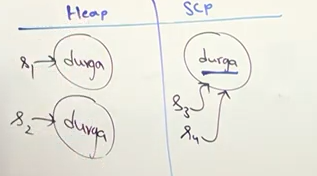 Heap SCP
s1 durga durga
s2 durga s3
s4